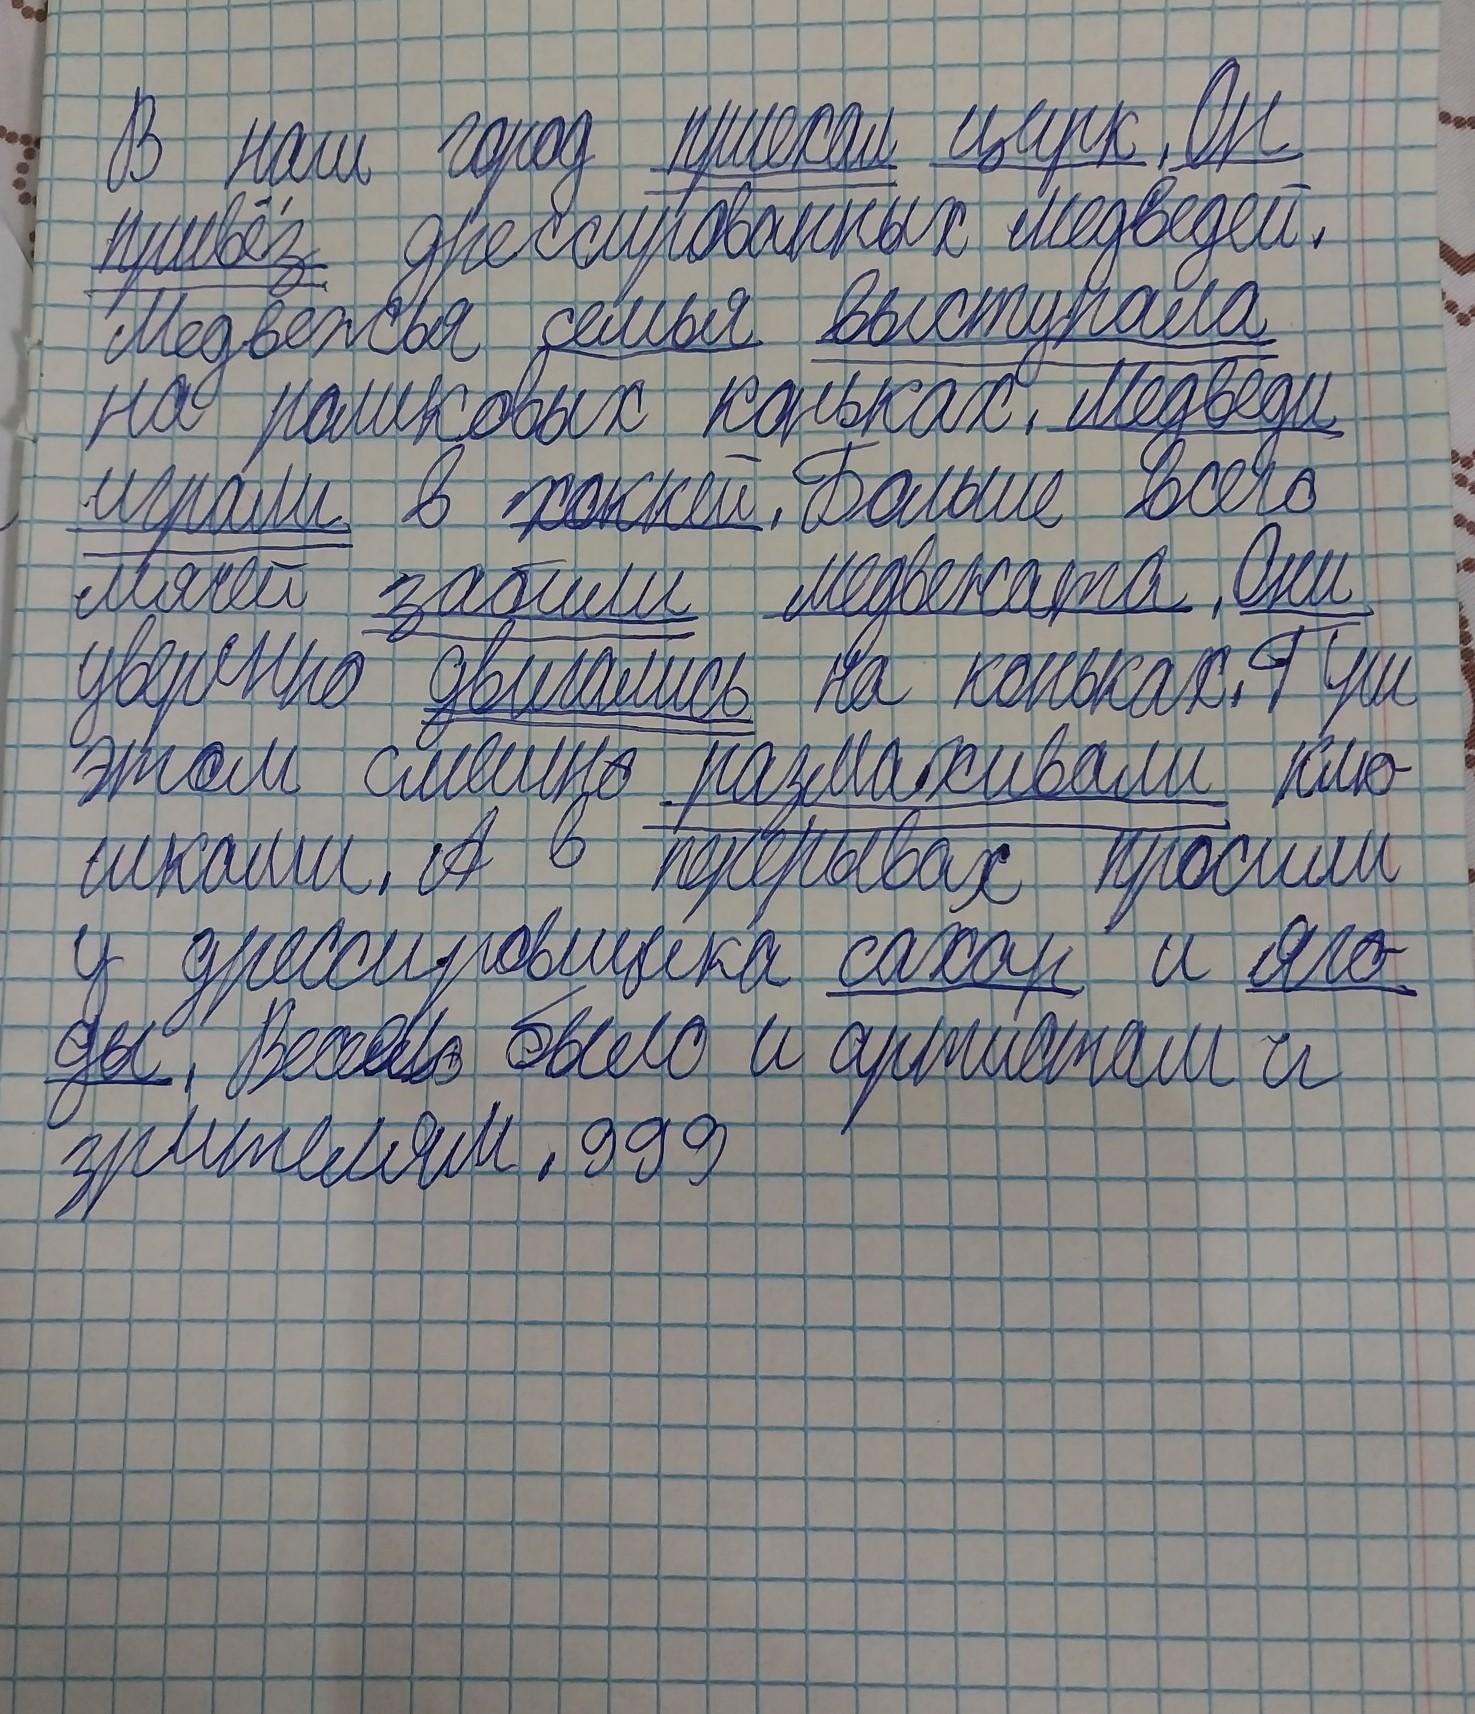 В наш город приехал цирк. Он
привёз дрессированных медведей.
Медвежья семья выступала
на роликовых коньках. Медведи
играли в хоккей. Больше всего
мячей забили медвежата. Они
уверенно двигались на коньках. При
этом смешно размахивали клю-
шками. А в перерывах просили
у дрессировщика сахар и яго-
ды. Весело было и артистам и
зрителям. 999